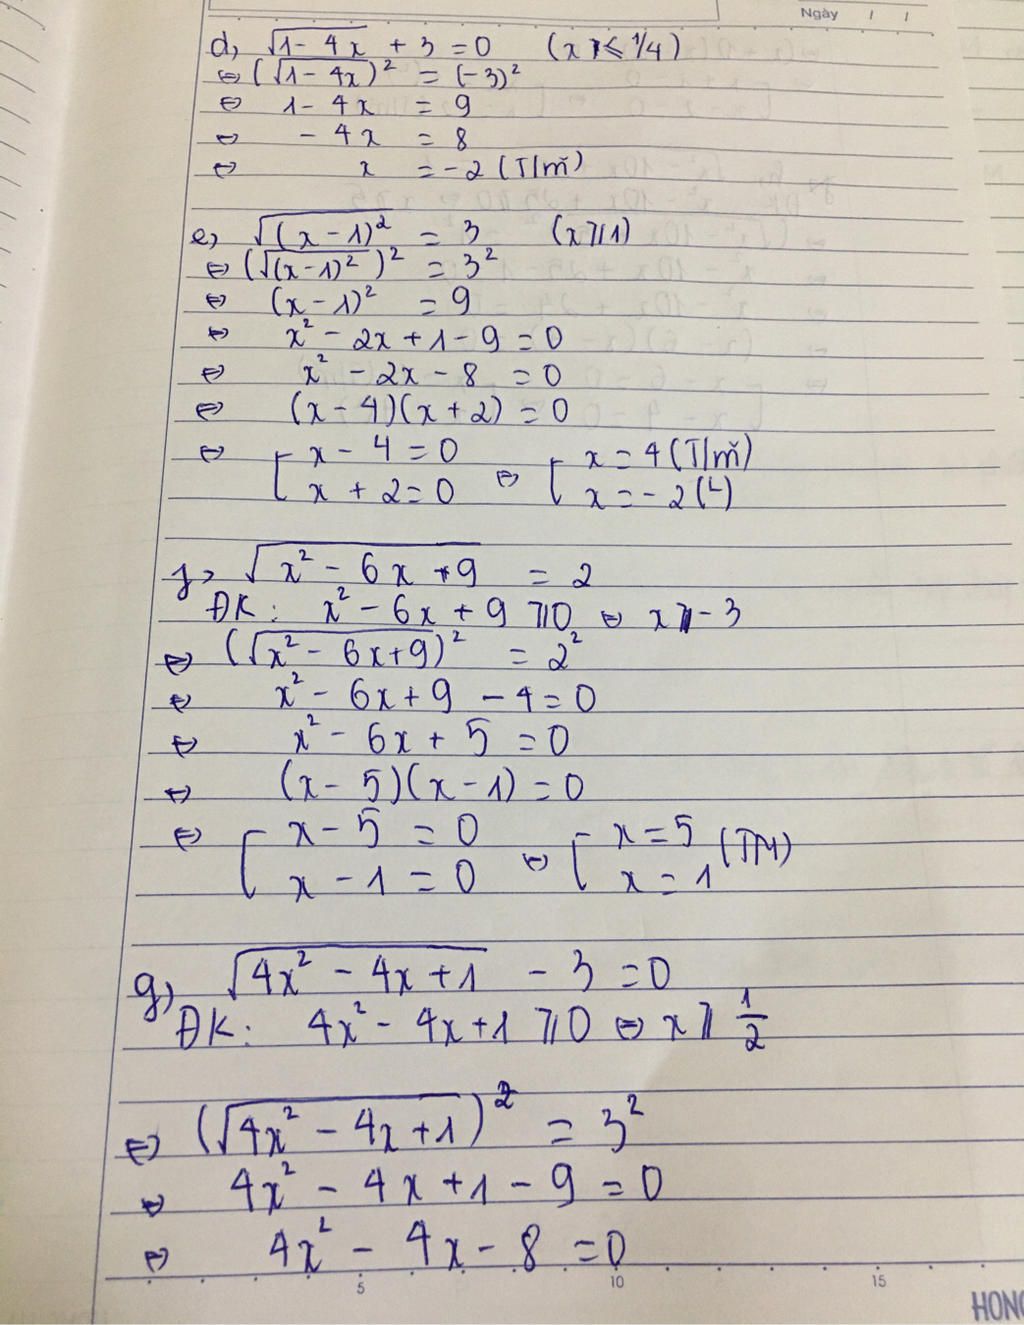 Ngày / /
d, √(1 - 4x) + 3 = 0 (x ⩽ 1/4)
⇔ (√(1 - 4x))² = (-3)²
⇔ 1 - 4x = 9
⇔ - 4x = 8
⇔ x = -2 (T/m)
e, √((x - 1)²) = 3 (x ⩾ 1)
⇔ (√((x - 1)²))² = 3²
⇔ (x - 1)² = 9
⇔ x² - 2x + 1 - 9 = 0
⇔ x² - 2x - 8 = 0
⇔ (x - 4)(x + 2) = 0
⇔ [ x - 4 = 0 ⇔ [ x = 4 (T/m)
x + 2 = 0 x = - 2 (L)
f, √(x² - 6x + 9) = 2
ĐK: x² - 6x + 9 ⩾ 0 ⇔ x ⩾ - 3
⇔ (√(x² - 6x + 9))² = 2²
⇔ x² - 6x + 9 - 4 = 0
⇔ x² - 6x + 5 = 0
⇔ (x - 5)(x - 1) = 0
⇔ [ x - 5 = 0 ⇔ [ x = 5 (TM)
x - 1 = 0 x = 1
g, √(4x² - 4x + 1) - 3 = 0
ĐK: 4x² - 4x + 1 ⩾ 0 ⇔ x ⩾ 1/2
⇔ (√(4x² - 4x + 1))² = 3²
⇔ 4x² - 4x + 1 - 9 = 0
⇔ 4x² - 4x - 8 = 0
5 10 15
HONG